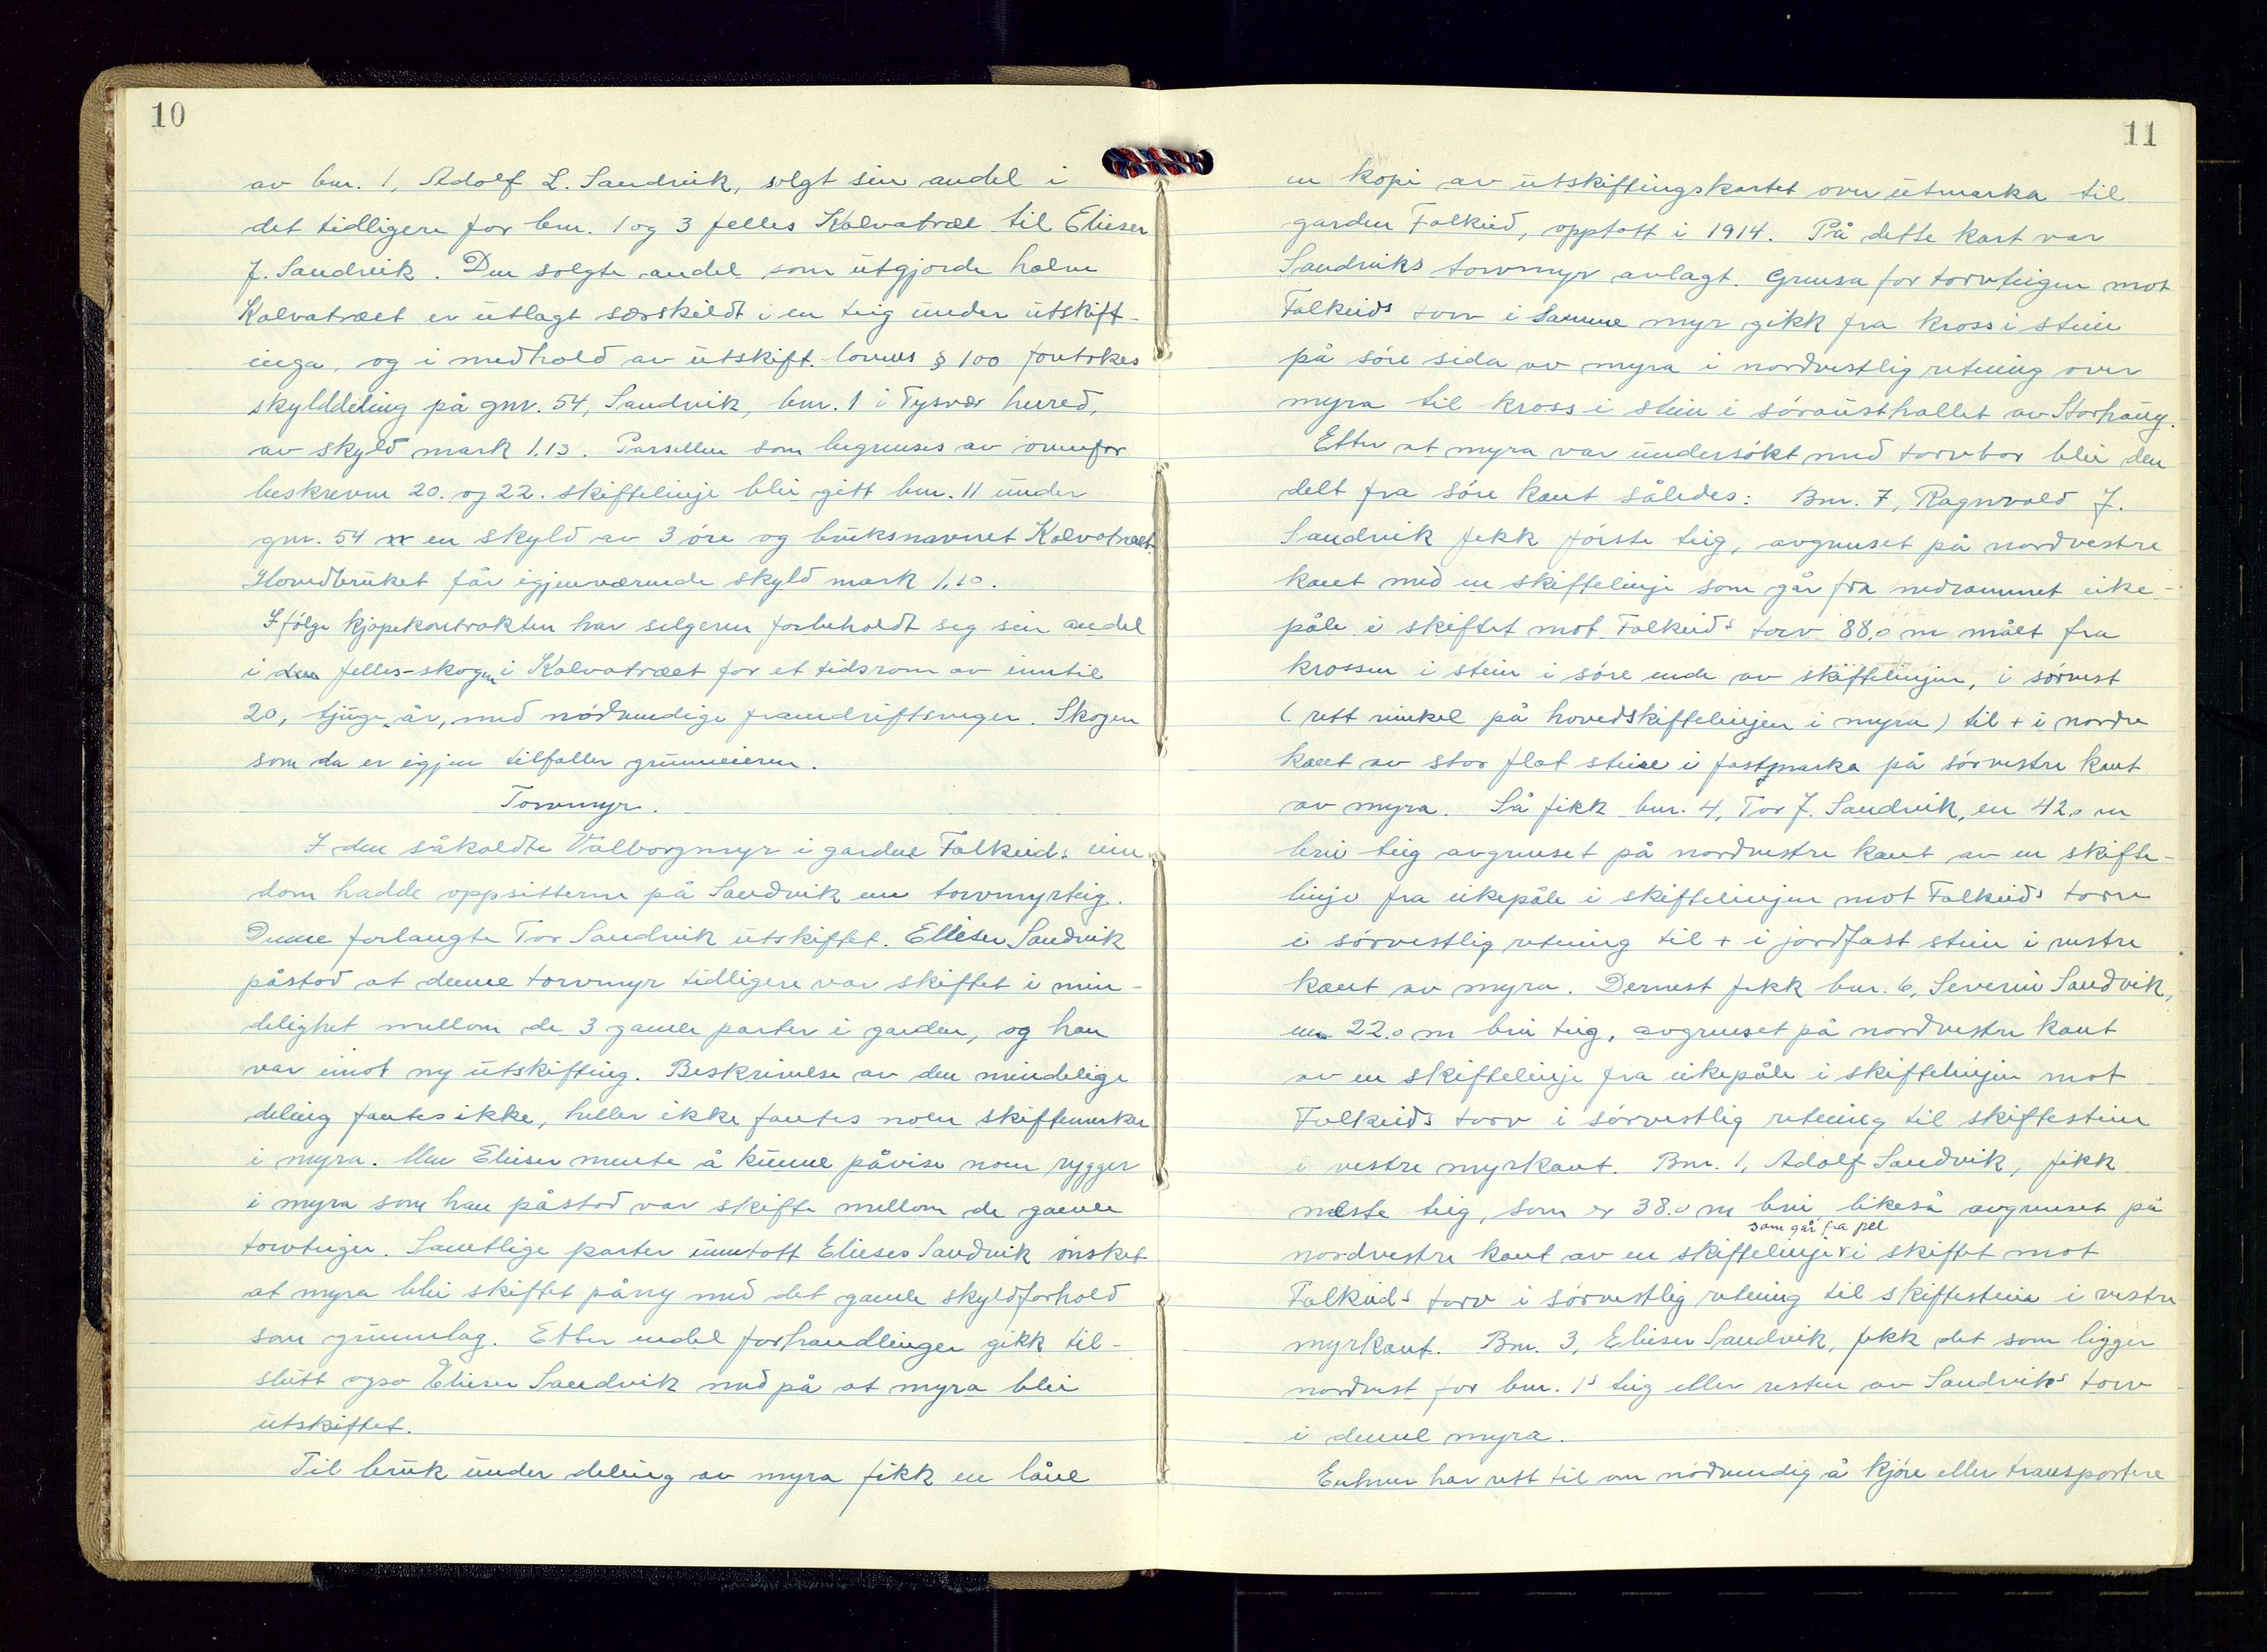 10
av bnr. 1, Adolf L. Sandvik, solgt sin andel i
det tidligere for bnr. 1 og 3 felles Kalvatræe til Elieser
J. Sandvik. Den solgte andel som utgjorde halve
Kalvatræet er utlagt særskildt i en teig under utskift-
inga, og i medhold av utskift. lovens § 100 foretokes
skylddeling på gnr. 54, Sandvik, bnr. 1 i Tysvær herred,
av skyld mark 1.13. Parsellen som begrenses av ovenfor
beskrevne 20. og 22. skiftelinje blei gitt bnr. 11 under
gnr. 54 en skyld av 3 øre og bruksnavnet Kalvatræet.
Hovedbruket får igjenværende skyld mark 1.10.
Ifølge kjøpekontrakten har selgeren forbeholdt seg sin andel
i den felles-skogen i Kalvatræet for et tidsrom av inntil
20, tjuge, år, med nødvendige framdriftsveger. Skogen
som da er igjen tilfaller grunneieren.
Torvmyr.
I den såkaldte Valborgmyr i garden Falkeids eien-
dom hadde oppsitterne på Sandvik en torvmyrteig.
Denne forlangte Tor Sandvik utskiftet. Elieser Sandvik
påstod at denne torvmyr tidligere var skiftet i min-
delighet mellom de 3 gamle parter i garden, og han
var imot ny utskifting. Beskrivelse av den mindelige
deling fantes ikke, heller ikke fantes noen skiftemerker
i myra. Men Elieser mente å kunne påvise noen rygger
i myra som han påstod var skifte mellom de gamle
torvteiger. Samtlige parter unntatt Elieser Sandvik ønsket
at myra blei skiftet påny med det gamle skyldforhold
som grunnlag. Etter endel forhandlinger gikk til-
slutt også Elieser Sandvik med på at myra blei
utskiftet.
Til bruk under deling av myra fikk en låne
11
en kopi av utskiftingskartet over utmarka til
garden Falkeid, opptatt i 1914. På dette kart var
Sandviks torvmyr avlagt. Grensa for torvteigen mot
Falkeids torv i samme myr gikk fra kross i stein
på søre sida av myra i nordvestlig retning over
myra til kross i stein i sørausthallet av Storhaug.
Etter at myra var undersøkt med torvbor blei den
delt fra søre kant således: Bnr. 7, Ragnvald J.
Sandvik fekk første teig, avgrenset på nordvestre
kant med en skiftelinje som går fra nedrammet eike-
påle i skiftet mot Falkeids torv 88.0 m målt fra
krossen i stein i søre ende av skiftelinjen, i sørvest
(rett vinkel på hovedskiftelinjen i myra) til + i nordre
kant av stor flat steine i fastmarka på sørvestre kant
av myra. Så fikk bnr. 4, Tor J. Sandvik, en 42.0 m
brei teig avgrenset på nordvestre kant av en skifte-
linje fra eikepåle i skiftelinjen mot Falkeids torv
i sørvestlig retning til + i jordfast stein i vestre
kant av myra. Dernest fekk bnr. 6, Severin Sandvik,
en 22.0 m brei teig, avgrenset på nordvestre kant
av en skiftelinje fra eikepåle i skiftelinjen mot
Falkeids torv i sørvestlig retning til skiftestein
i vestre myrkant. Bnr. 1, Adolf Sandvik, fikk
næste teig, som er 38.0 m brei, likeså avgrenset på
som går fra pel
nordvestre kant av en skiftelinje v i skiftet mot
Falkeids torv i sørvestlig retning til skiftestein i vestre
myrkant. Bnr. 3, Elieser Sandvik, fekk det som ligger
nordvest for bnr. 1s teig eller resten av Sandviks torv
i denne myra.
Enhver har rett til om nødvendig å kjøre eller transportere